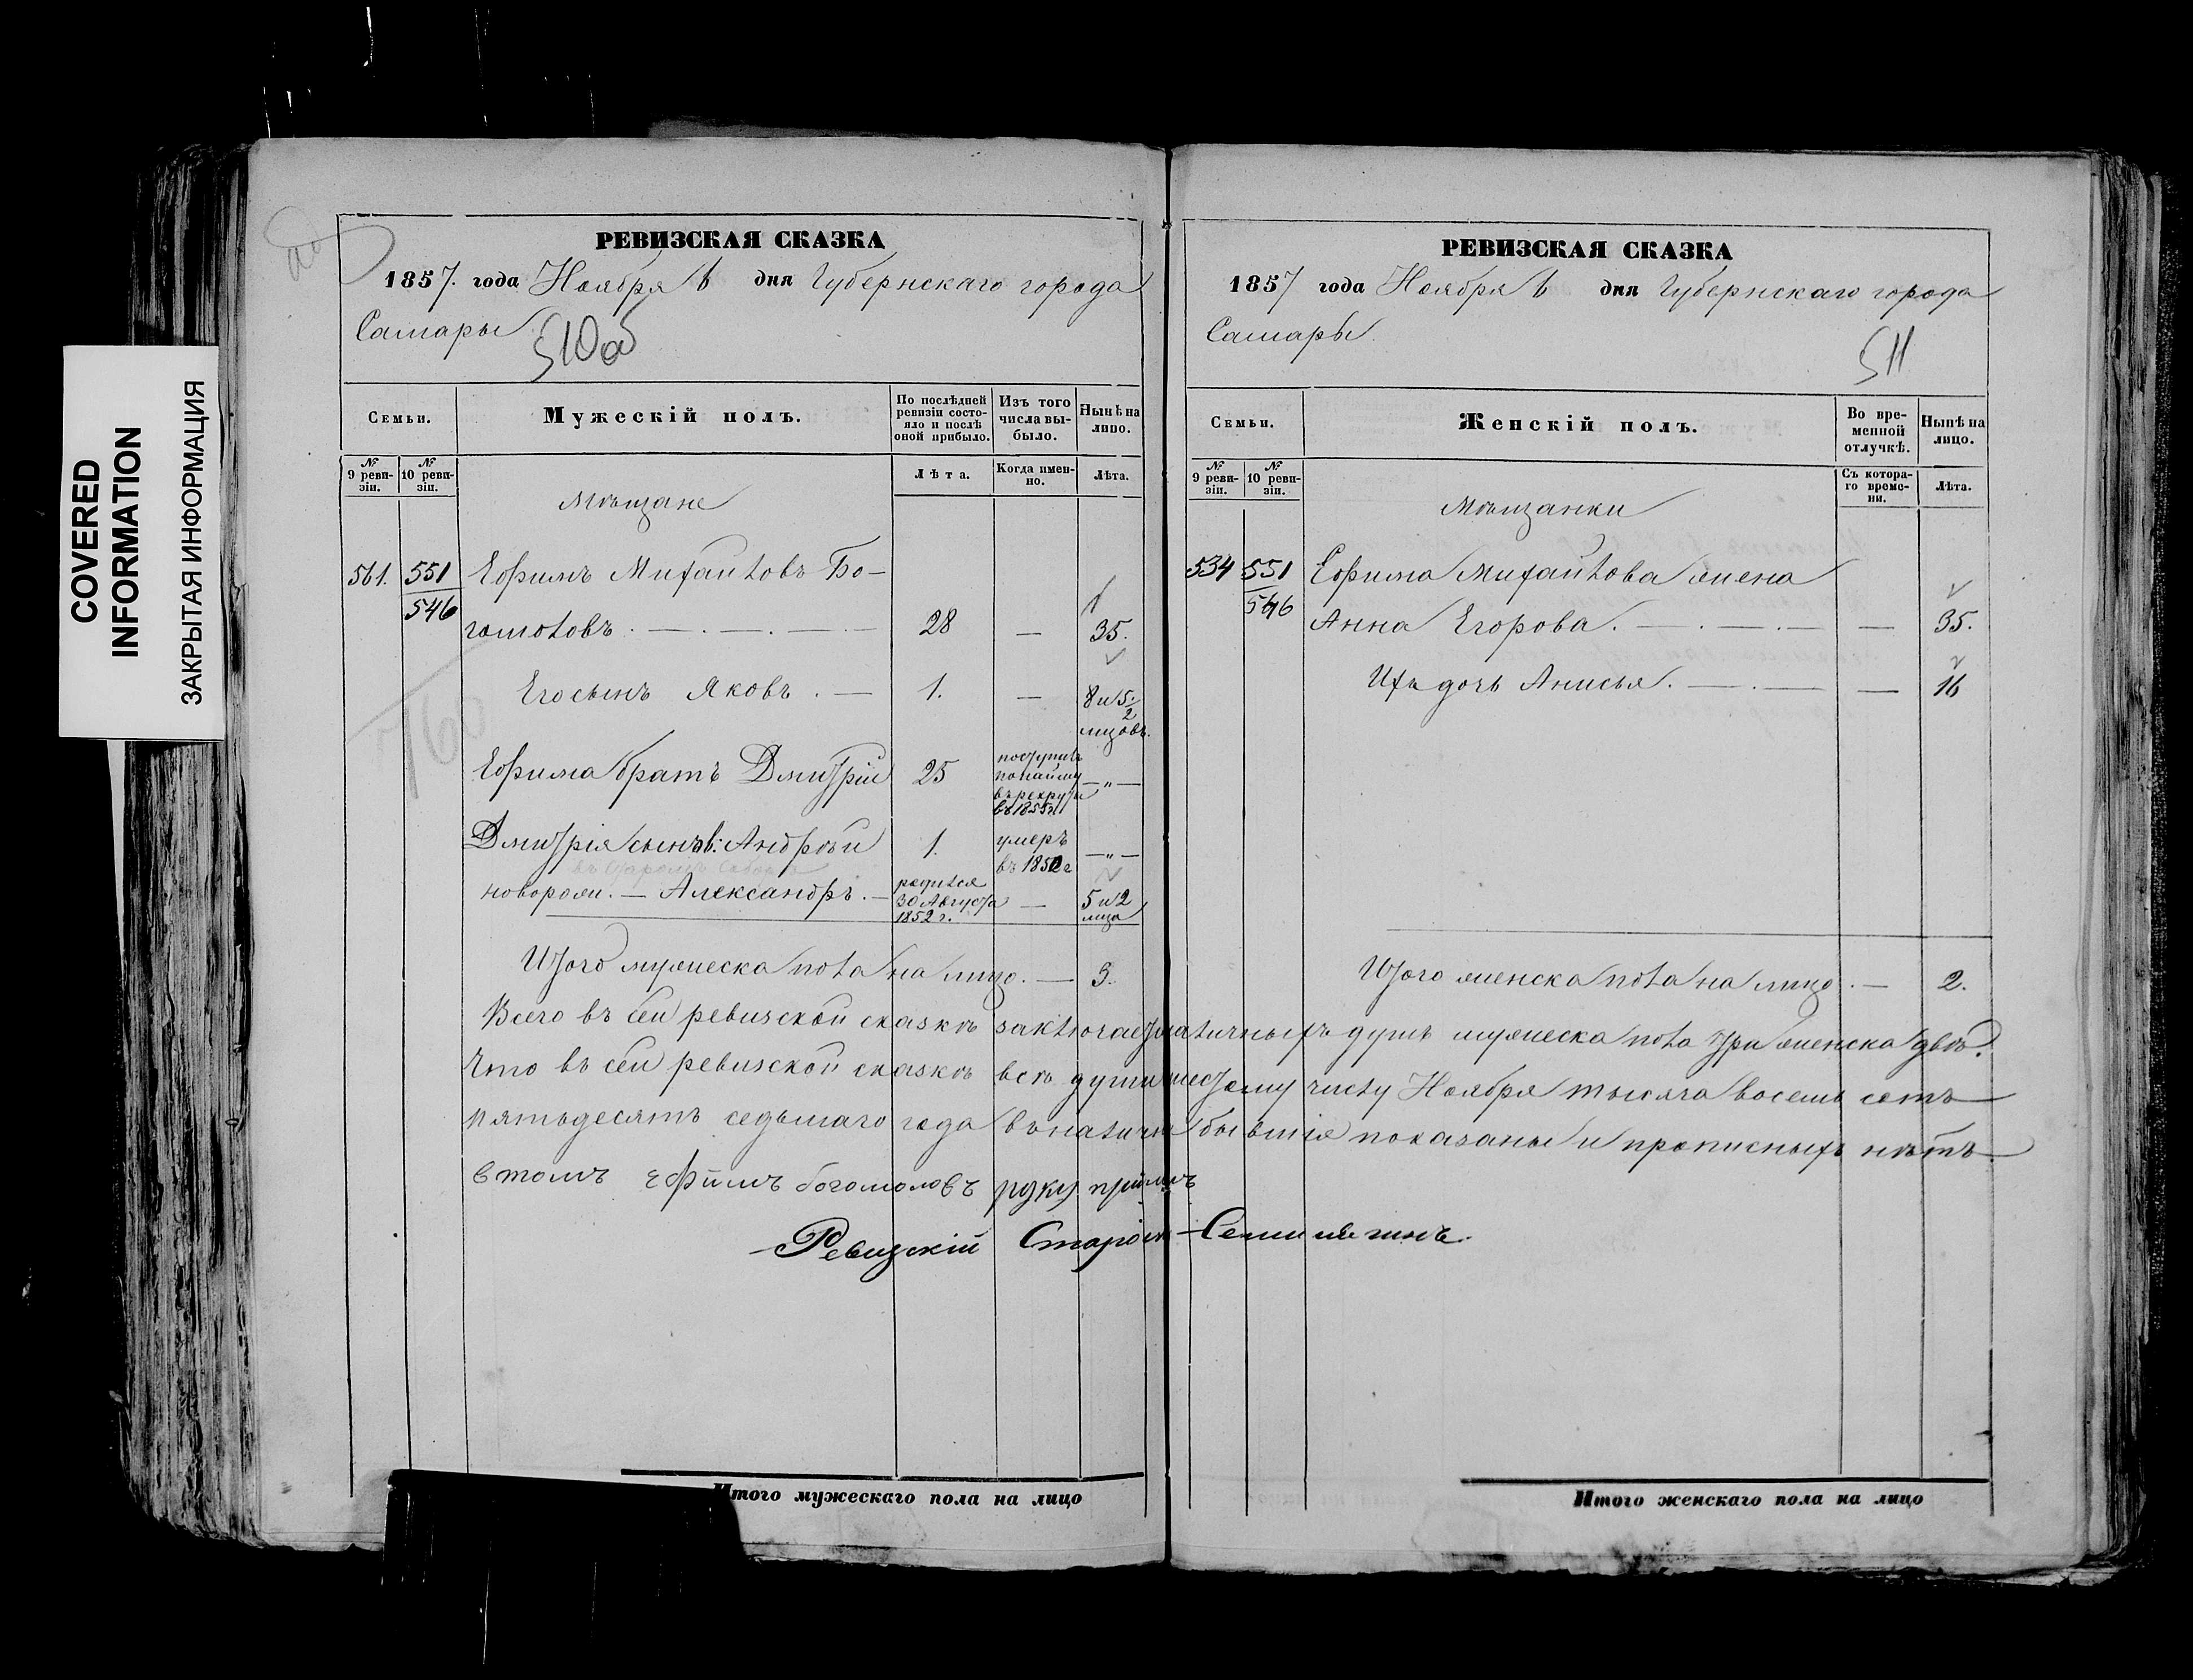 COVERED
INFORMATION
ЗАКРЫТАЯ ИНФОРМАЦИЯ
РЕВИЗСКАЯ СКАЗКА
1857. года Ноября 6 дня Губернскаго города
Самары
510об
Семьи.
Мужескій полъ.
По послѣдней ревизіи состояло и послѣ оной прибыло.
Изъ того числа выбыло.
Нынѣ на лицо.
№ 9 ревизіи.
№ 10 ревизіи.
Лѣта.
Когда именно.
Лѣта.
Мѣщане
561. 551 Ефимъ Михайловъ Бо-
546 гомоловъ. 28 — 35.
Его сынъ Яковъ. — 1. — 8 и 5/2 мцовъ.
Ефима братъ Дмитрій 25 поступилъ по найму въ рекруты въ 1855 г. — " —
Дмитрія сынъ в: Андрей 1. умеръ въ 1850 г — " —
новорож. — Александръ. — родился 30 Августа 1852 г. — 5 и 2 мца
Итого мужеска пола на лицо. — 3.
РЕВИЗСКАЯ СКАЗКА
1857 года Ноября 6 дня Губернскаго города
Самары.
511
Семьи.
Женскій полъ.
Во временной отлучкѣ.
Нынѣ на лицо.
№ 9 ревизіи.
№ 10 ревизіи.
Съ котораго времени.
Лѣта.
Мѣщанки
534 551 Ефима Михайлова жена
546 Анна Егорова. — 35.
Ихъ дочь Анисья. — 16
Итого женска пола на лицо. — 2.
Всего въ сей ревизской сказкѣ заключается наличныхъ душъ мужеска пола три женска двѣ.
Что въ сей ревизской сказкѣ всѣ души шестому числу Ноября тысяча восемь сотъ
пятьдесятъ седьмаго года въ наличіи бывшія показаны и прописныхъ нѣтъ
втомъ ефимъ богомоловъ руку приложъ
Ревизскій Старо
Итого мужескаго пола на лицо
Итого женскаго пола на лицо